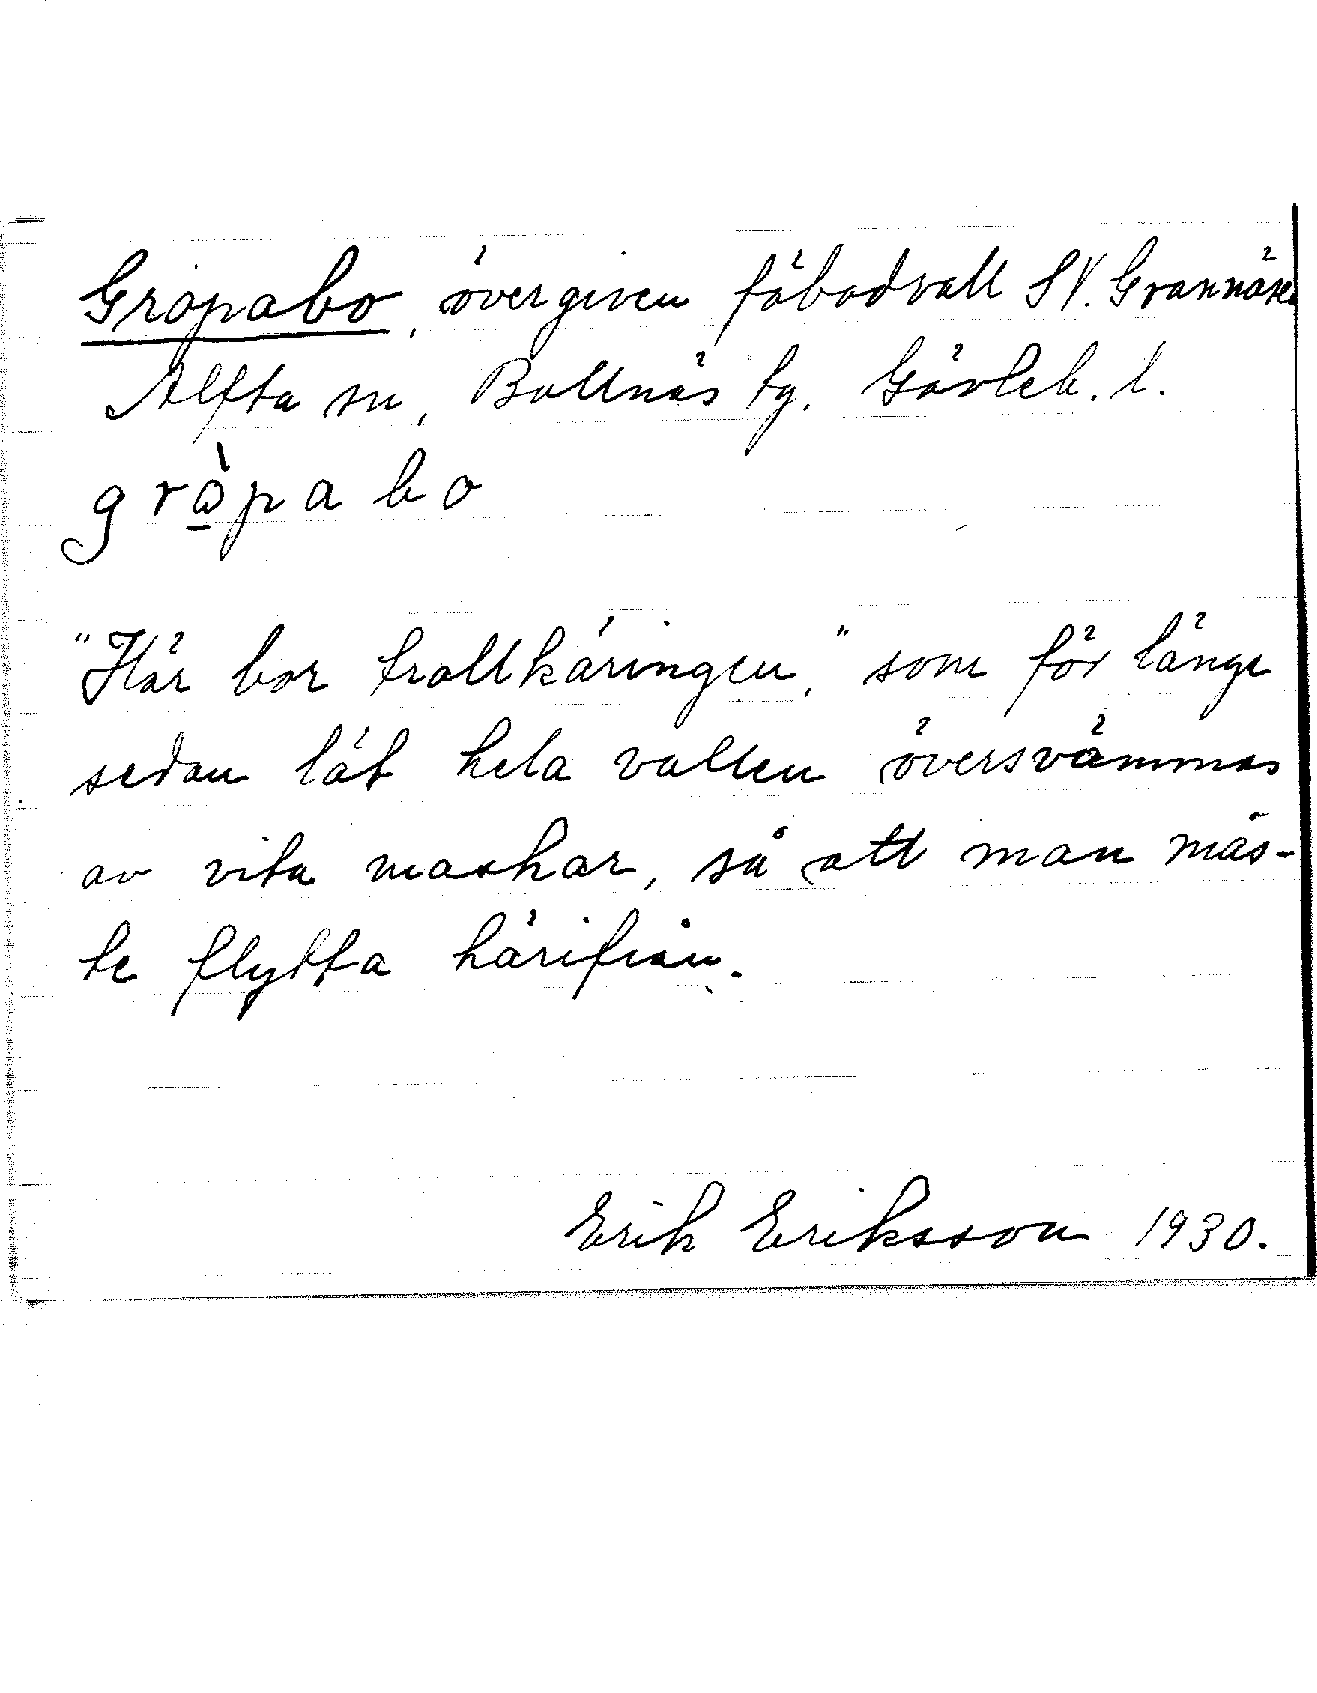 Gropabo, övergiven fäbodvall SV. Grannäsen
Alfta sn, Bollnäs tg. Gävleb. l.
gròpabo
"Här bor trollkäringen," som för länge
sedan lät hela vallen översvämmas
av vita maskar, så att man mås-
te flytta härifrån.
Erik Eriksson 1930.